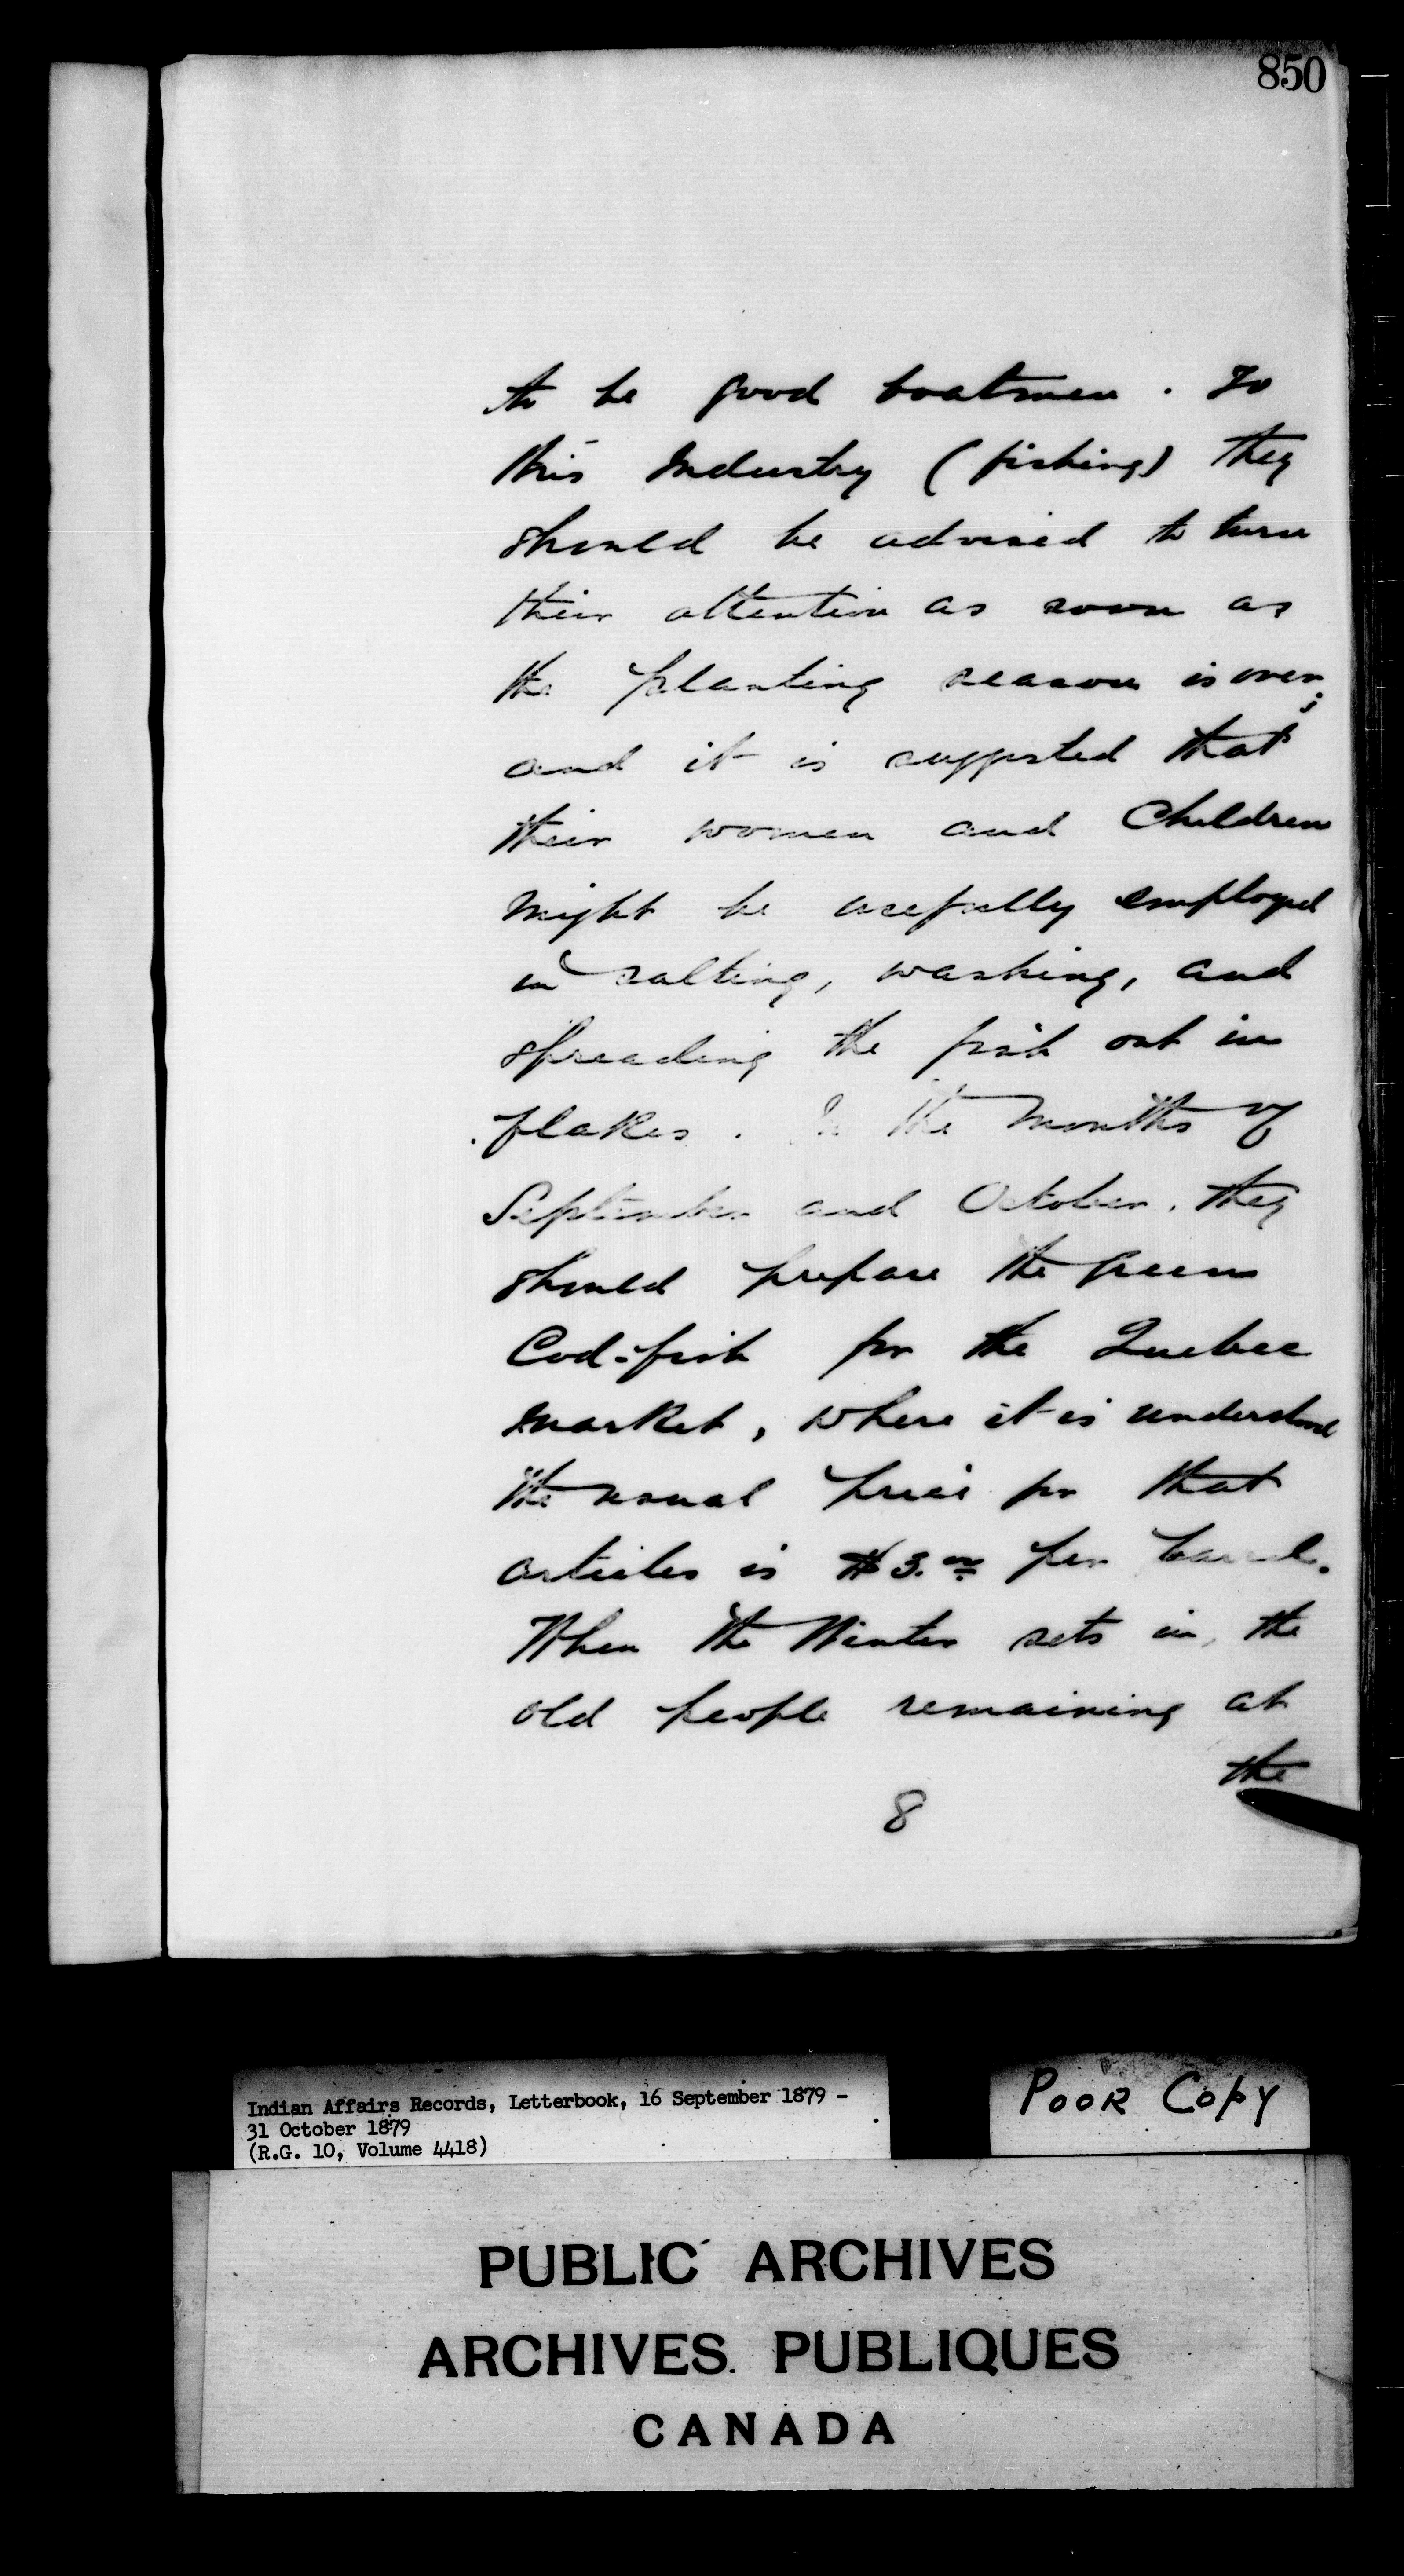 850
to be good boatmen. To
this Industry (fishing) they
should be advised to turn
their attention as soon as
the planting season is over;
and it is suggested that
their women and Children
might be usefully employed
in salting, washing, and
spreading the fish out in
flakes. In the months of
September and October, they
should prepare the Green
Cod-fish for the Quebec
market, where it is understood
the usual price for that
articles is $3.00 per barrel.
When the Winter sets in, the
old people remaining at
the
8
Indian Affairs Records, Letterbook, 16 September 1879 -
31 October 1879
(R.G. 10, Volume 4418)
POOR COPY
PUBLIC ARCHIVES
ARCHIVES PUBLIQUES
CANADA